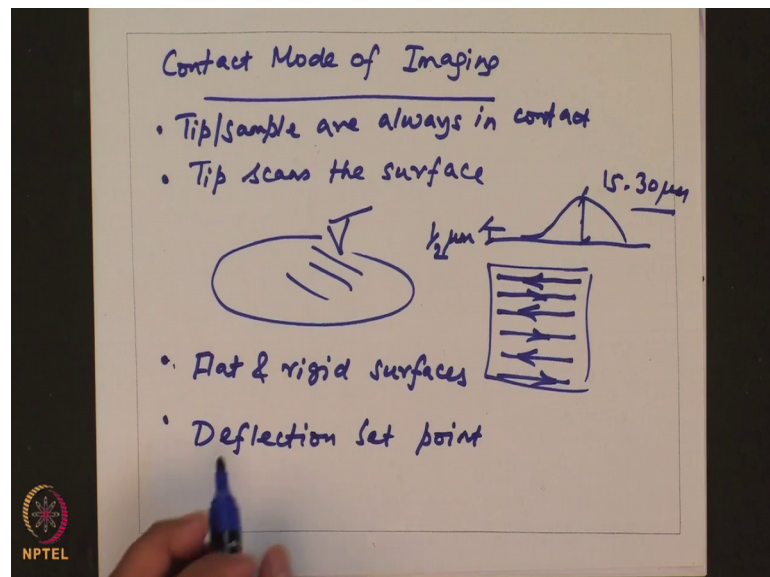 Contact Mode of Imaging
• Tip/sample are always in contact
• Tip scans the surface
15-30 µm
1/2 µm
• Flat & rigid surfaces
• Deflection Set point
NPTEL